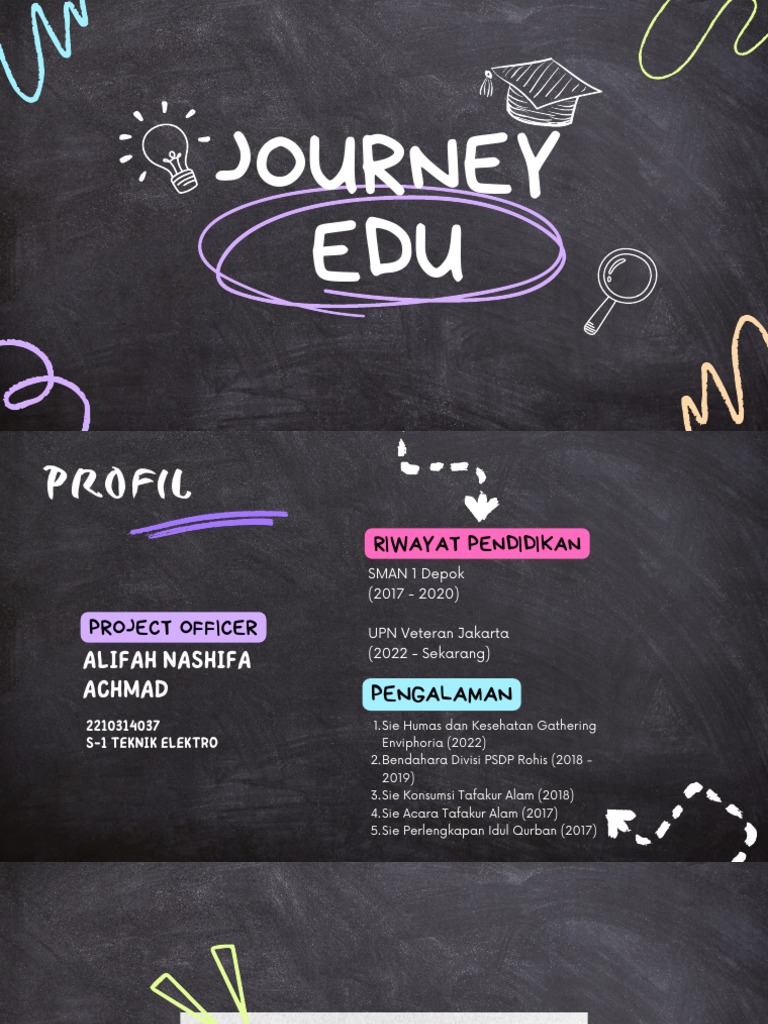 JOURNEY
EDU
PROFIL
PROJECT OFFICER
ALIFAH NASHIFA
ACHMAD
2210314037
S-1 TEKNIK ELEKTRO
RIWAYAT PENDIDIKAN
SMAN 1 Depok
(2017 - 2020)
UPN Veteran Jakarta
(2022 - Sekarang)
PENGALAMAN
1.Sie Humas dan Kesehatan Gathering
Enviphoria (2022)
2.Bendahara Divisi PSDP Rohis (2018 -
2019)
3.Sie Konsumsi Tafakur Alam (2018)
4.Sie Acara Tafakur Alam (2017)
5.Sie Perlengkapan Idul Qurban (2017)